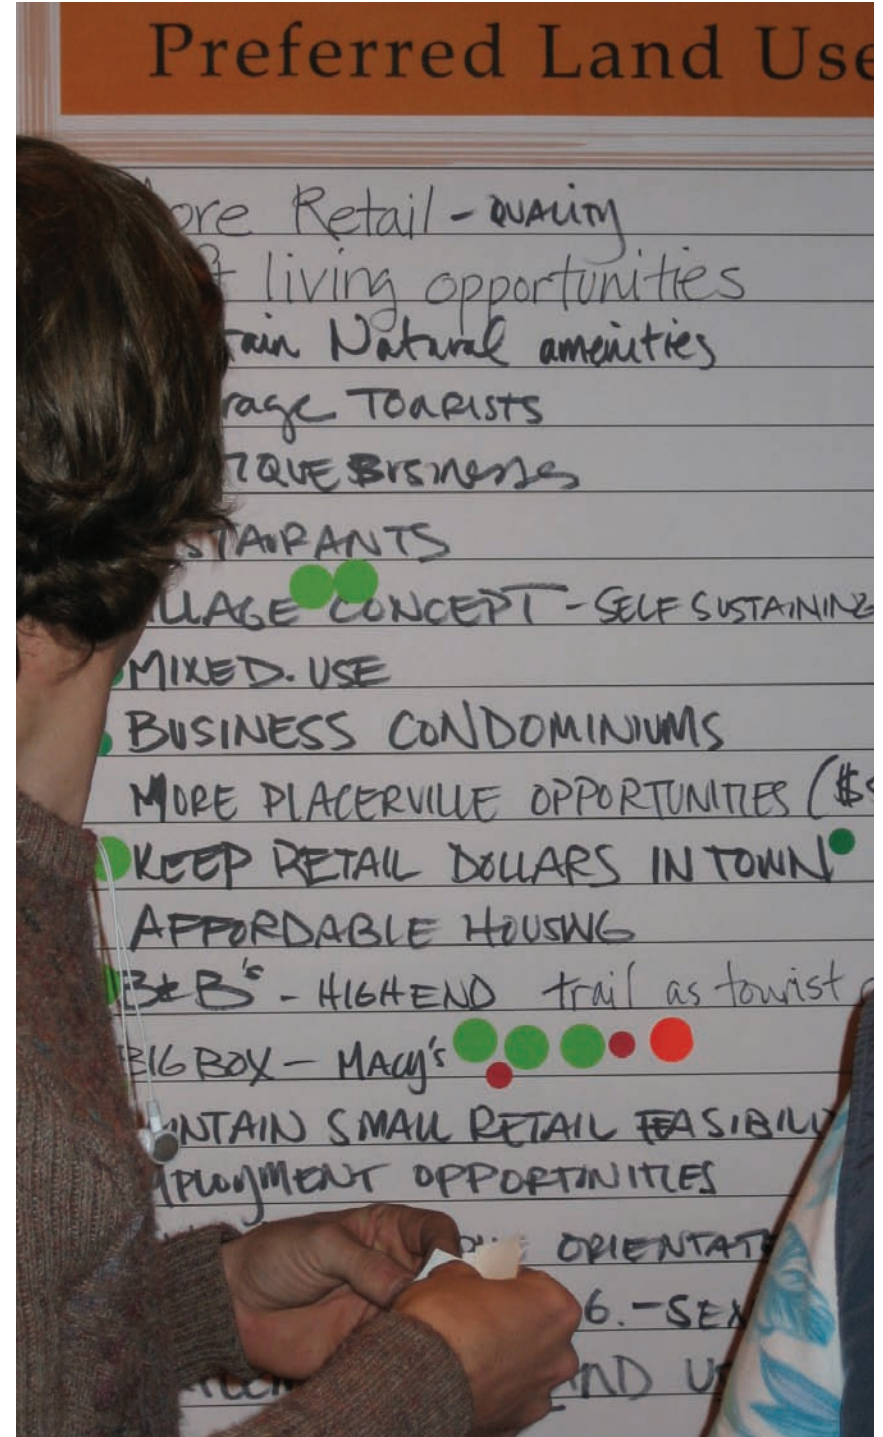 Preferred Land Use
ore Retail - QUALITY
living opportunities
tain Natural amenities
rage TOURISTS
TIQUE BUSINESSES
STAURANTS
ILLAGE CONCEPT - SELF SUSTAINING
MIXED. USE
BUSINESS CONDOMINIUMS
MORE PLACERVILLE OPPORTUNITIES ($
KEEP RETAIL DOLLARS IN TOWN
AFFORDABLE HOUSING
B&B's - HIGH END trail as tourist
BIG BOX - MACY'S
INTAIN SMALL RETAIL FEASIBILI
MPLOYMENT OPPORTINITIES
ORIENTATE
6. - SEN
AND US